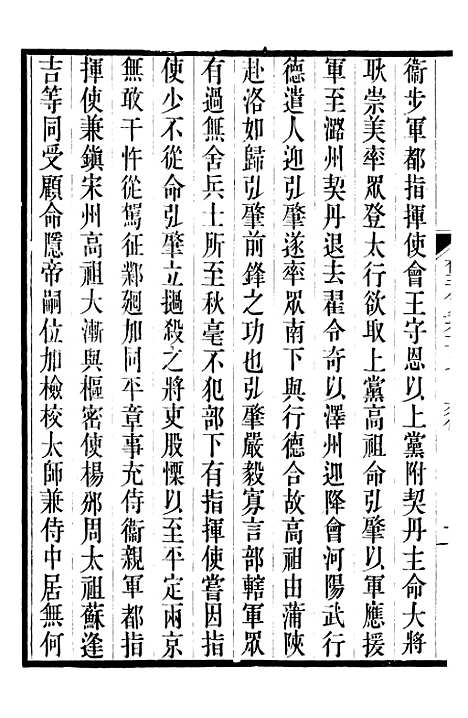 衞步軍都指揮使會王守恩以上黨附契丹主命大將
耿崇美率眾登太行欲取上黨高祖命弘肇以軍應援
軍至潞州契丹退去翟令奇以澤州迎降會河陽武行
德遣人迎弘肇遂率眾南下與行德合故高祖由蒲陝
赴洛如歸弘肇前鋒之功也弘肇嚴毅寡言部轄軍眾
有過無舍兵士所至秋毫不犯部下有指揮使嘗因指
使少不從命弘肇立撾殺之將吏股慄以至平定兩京
無敢干忤從駕征鄴迴加同平章事充侍衞親軍都指
揮使兼鎭宋州高祖大漸與樞密使楊邠周太祖蘇逢
吉等同受顧命隱帝嗣位加檢校太師兼侍中居無何